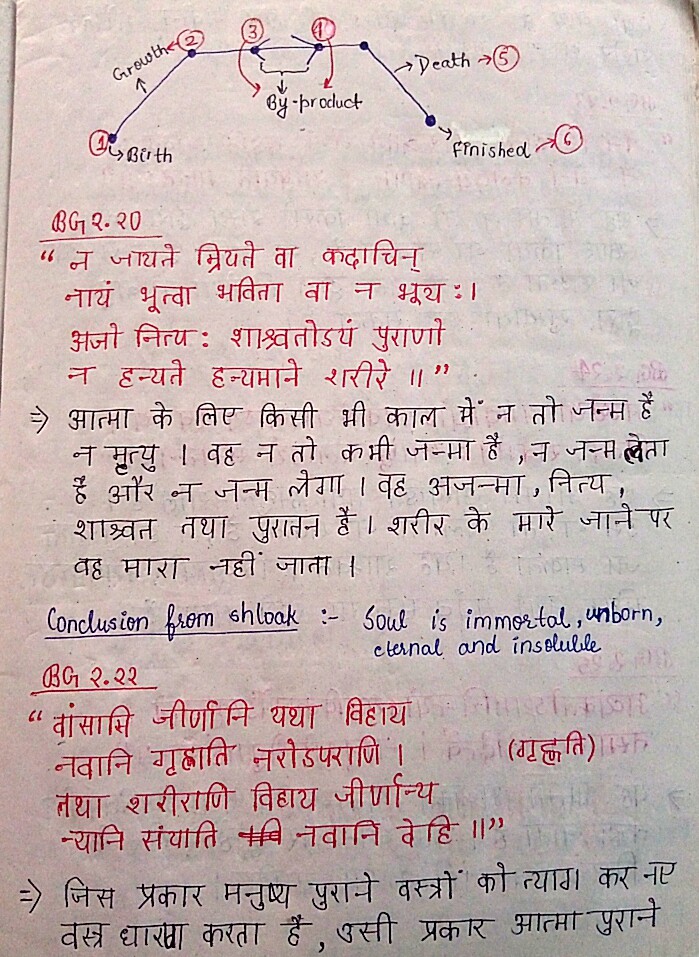 Growth ← ② ③ ④
→ Death → ⑤
By-product
① ↳ Birth
Finished → ⑥
BG 2.20
“न जायते म्रियते वा कदाचिन्
नायं भूत्वा भविता वा न भूयः ।
अजो नित्यः शाश्वतोडयं पुराणो
न हन्यते हन्यमाने शरीरे ॥”
⇒ आत्मा के लिए किसी भी काल में न तो जन्म है
न मृत्यु । वह न तो कभी जन्मा है , न जन्म लेता
है और न जन्म लेगा । वह अजन्मा , नित्य ,
शाश्वत तथा पुरातन है । शरीर के मारे जाने पर
वह मारा नहीं जाता ।
Conclusion from shloak :- Soul is immortal, unborn,
eternal and insoluble
BG 2.22
“वांसासि जीर्णानि यथा विहाय
नवानि गृह्णाति नरोडपराणि । (गृह्णति)
तथा शरीराणि विहाय जीर्णान्य
न्यानि संयाति नवानि देहि ॥”
⇒ जिस प्रकार मनुष्य पुराने वस्त्रों को त्याग कर नए
वस्त्र धारण करता है , उसी प्रकार आत्मा पुराने